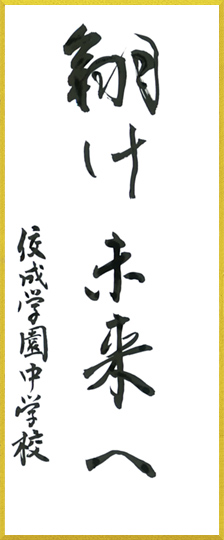 翔け 未来へ
佼成学園中学校